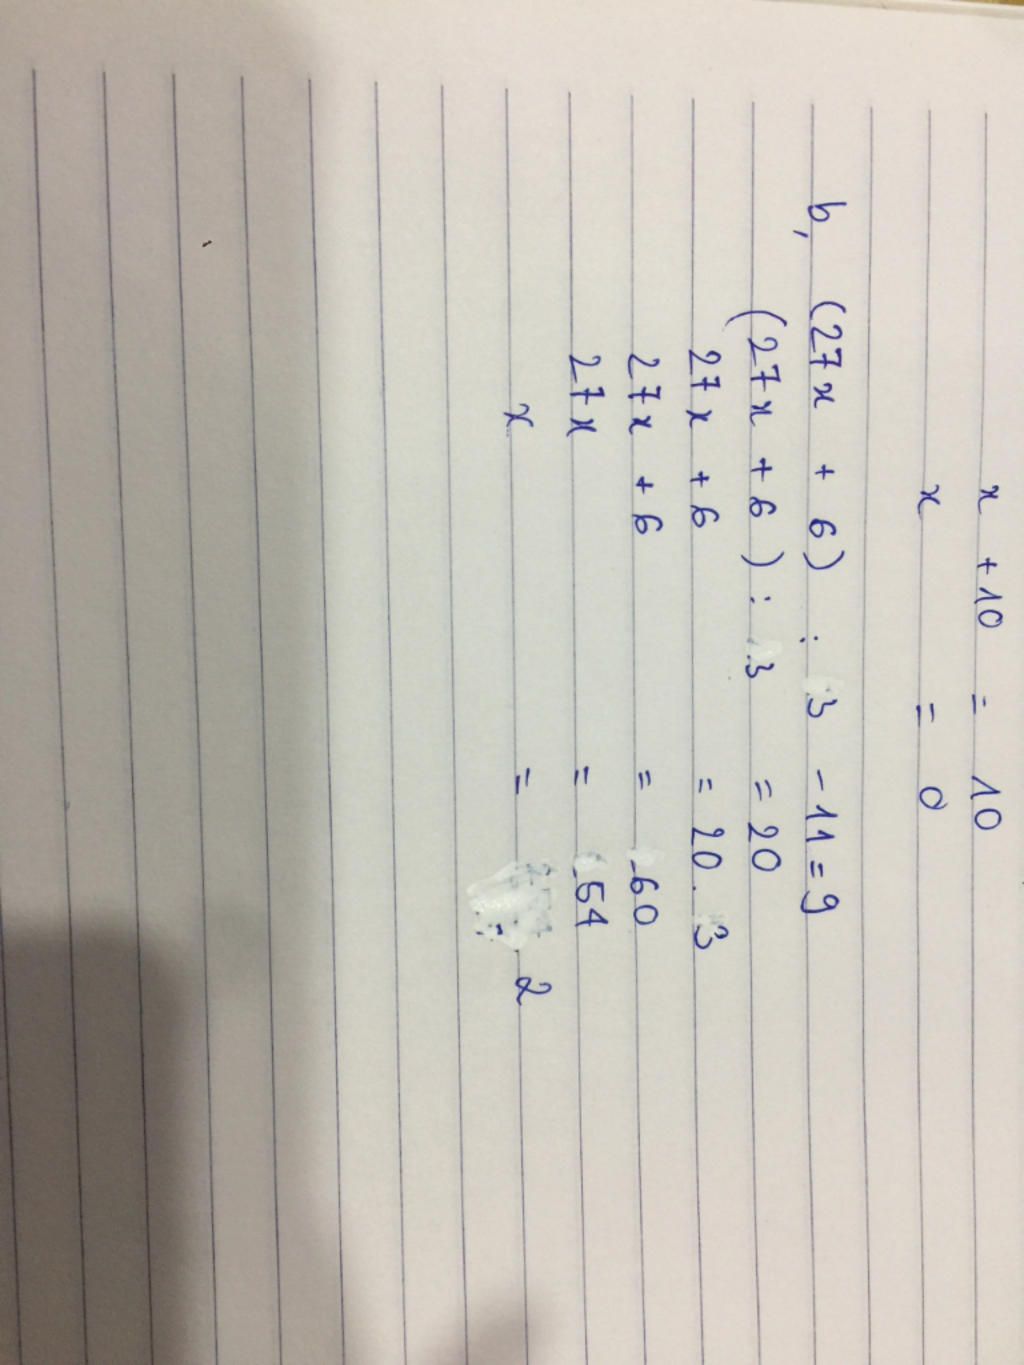 x + 10 = 10
x = 0
b, (27x + 6) : 3 - 11 = 9
(27x + 6) : 3 = 20
27x + 6 = 20 . 3
27x + 6 = 60
27x = 54
x = 2